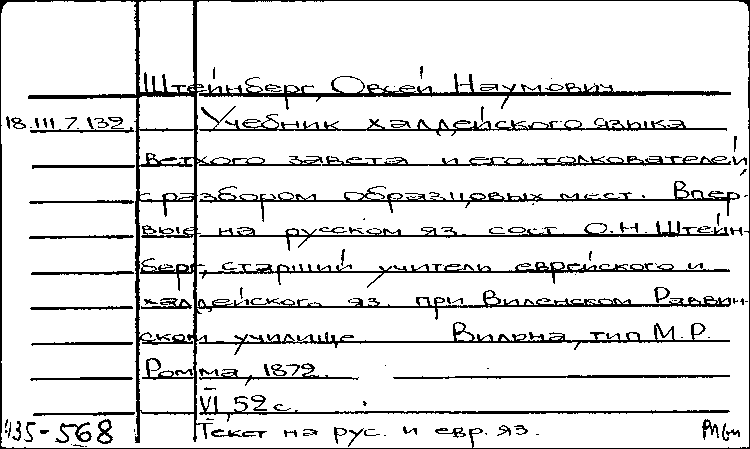 Штейнберг, Овсей Наумович
18.III.7.132. Учебник халдейского языка
Ветхого завета и его толкователей,
с разбором образцовых мест. Впер-
вые на русском яз. сост. О.Н. Штейн-
берг, старший учитель еврейского и
халдейского яз. при Виленском Раввин-
ском училище Вильна, тип М.Р.
Ромма, 1872.
VI, 52 с.
435-568 Текст на рус. и евр. яз.